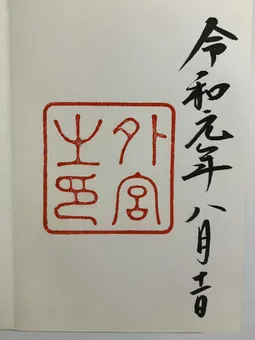 令和元年八月十一日
外宮
之印